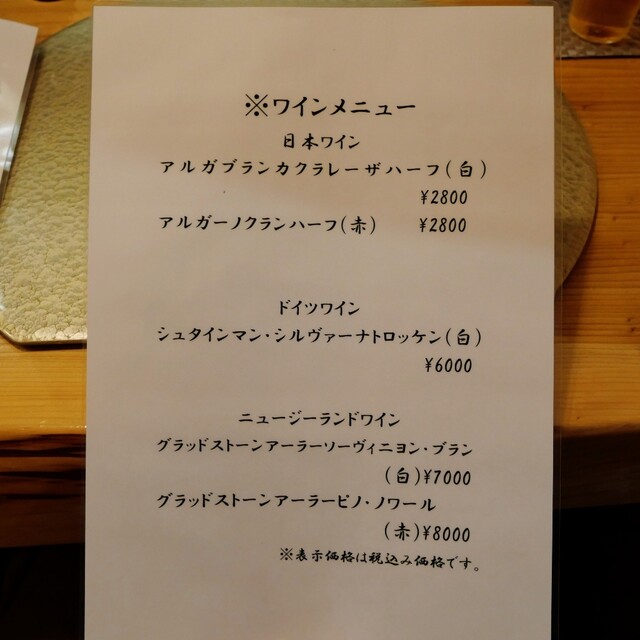 ※ワインメニュー
日本ワイン
アルガブランカクラレーザハーフ(白)
¥2800
アルガーノクランハーフ(赤) ¥2800
ドイツワイン
シュタインマン・シルヴァーナトロッケン(白)
¥6000
ニュージーランドワイン
グラッドストーンアーラーソーヴィニヨン・ブラン
(白)¥7000
グラッドストーンアーラーピノ・ノワール
(赤)¥8000
※表示価格は税込み価格です。